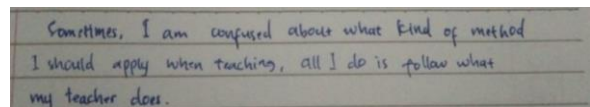 Sometimes, I am confused about what kind of method
I should apply when teaching, all I do is follow what
my teacher does.